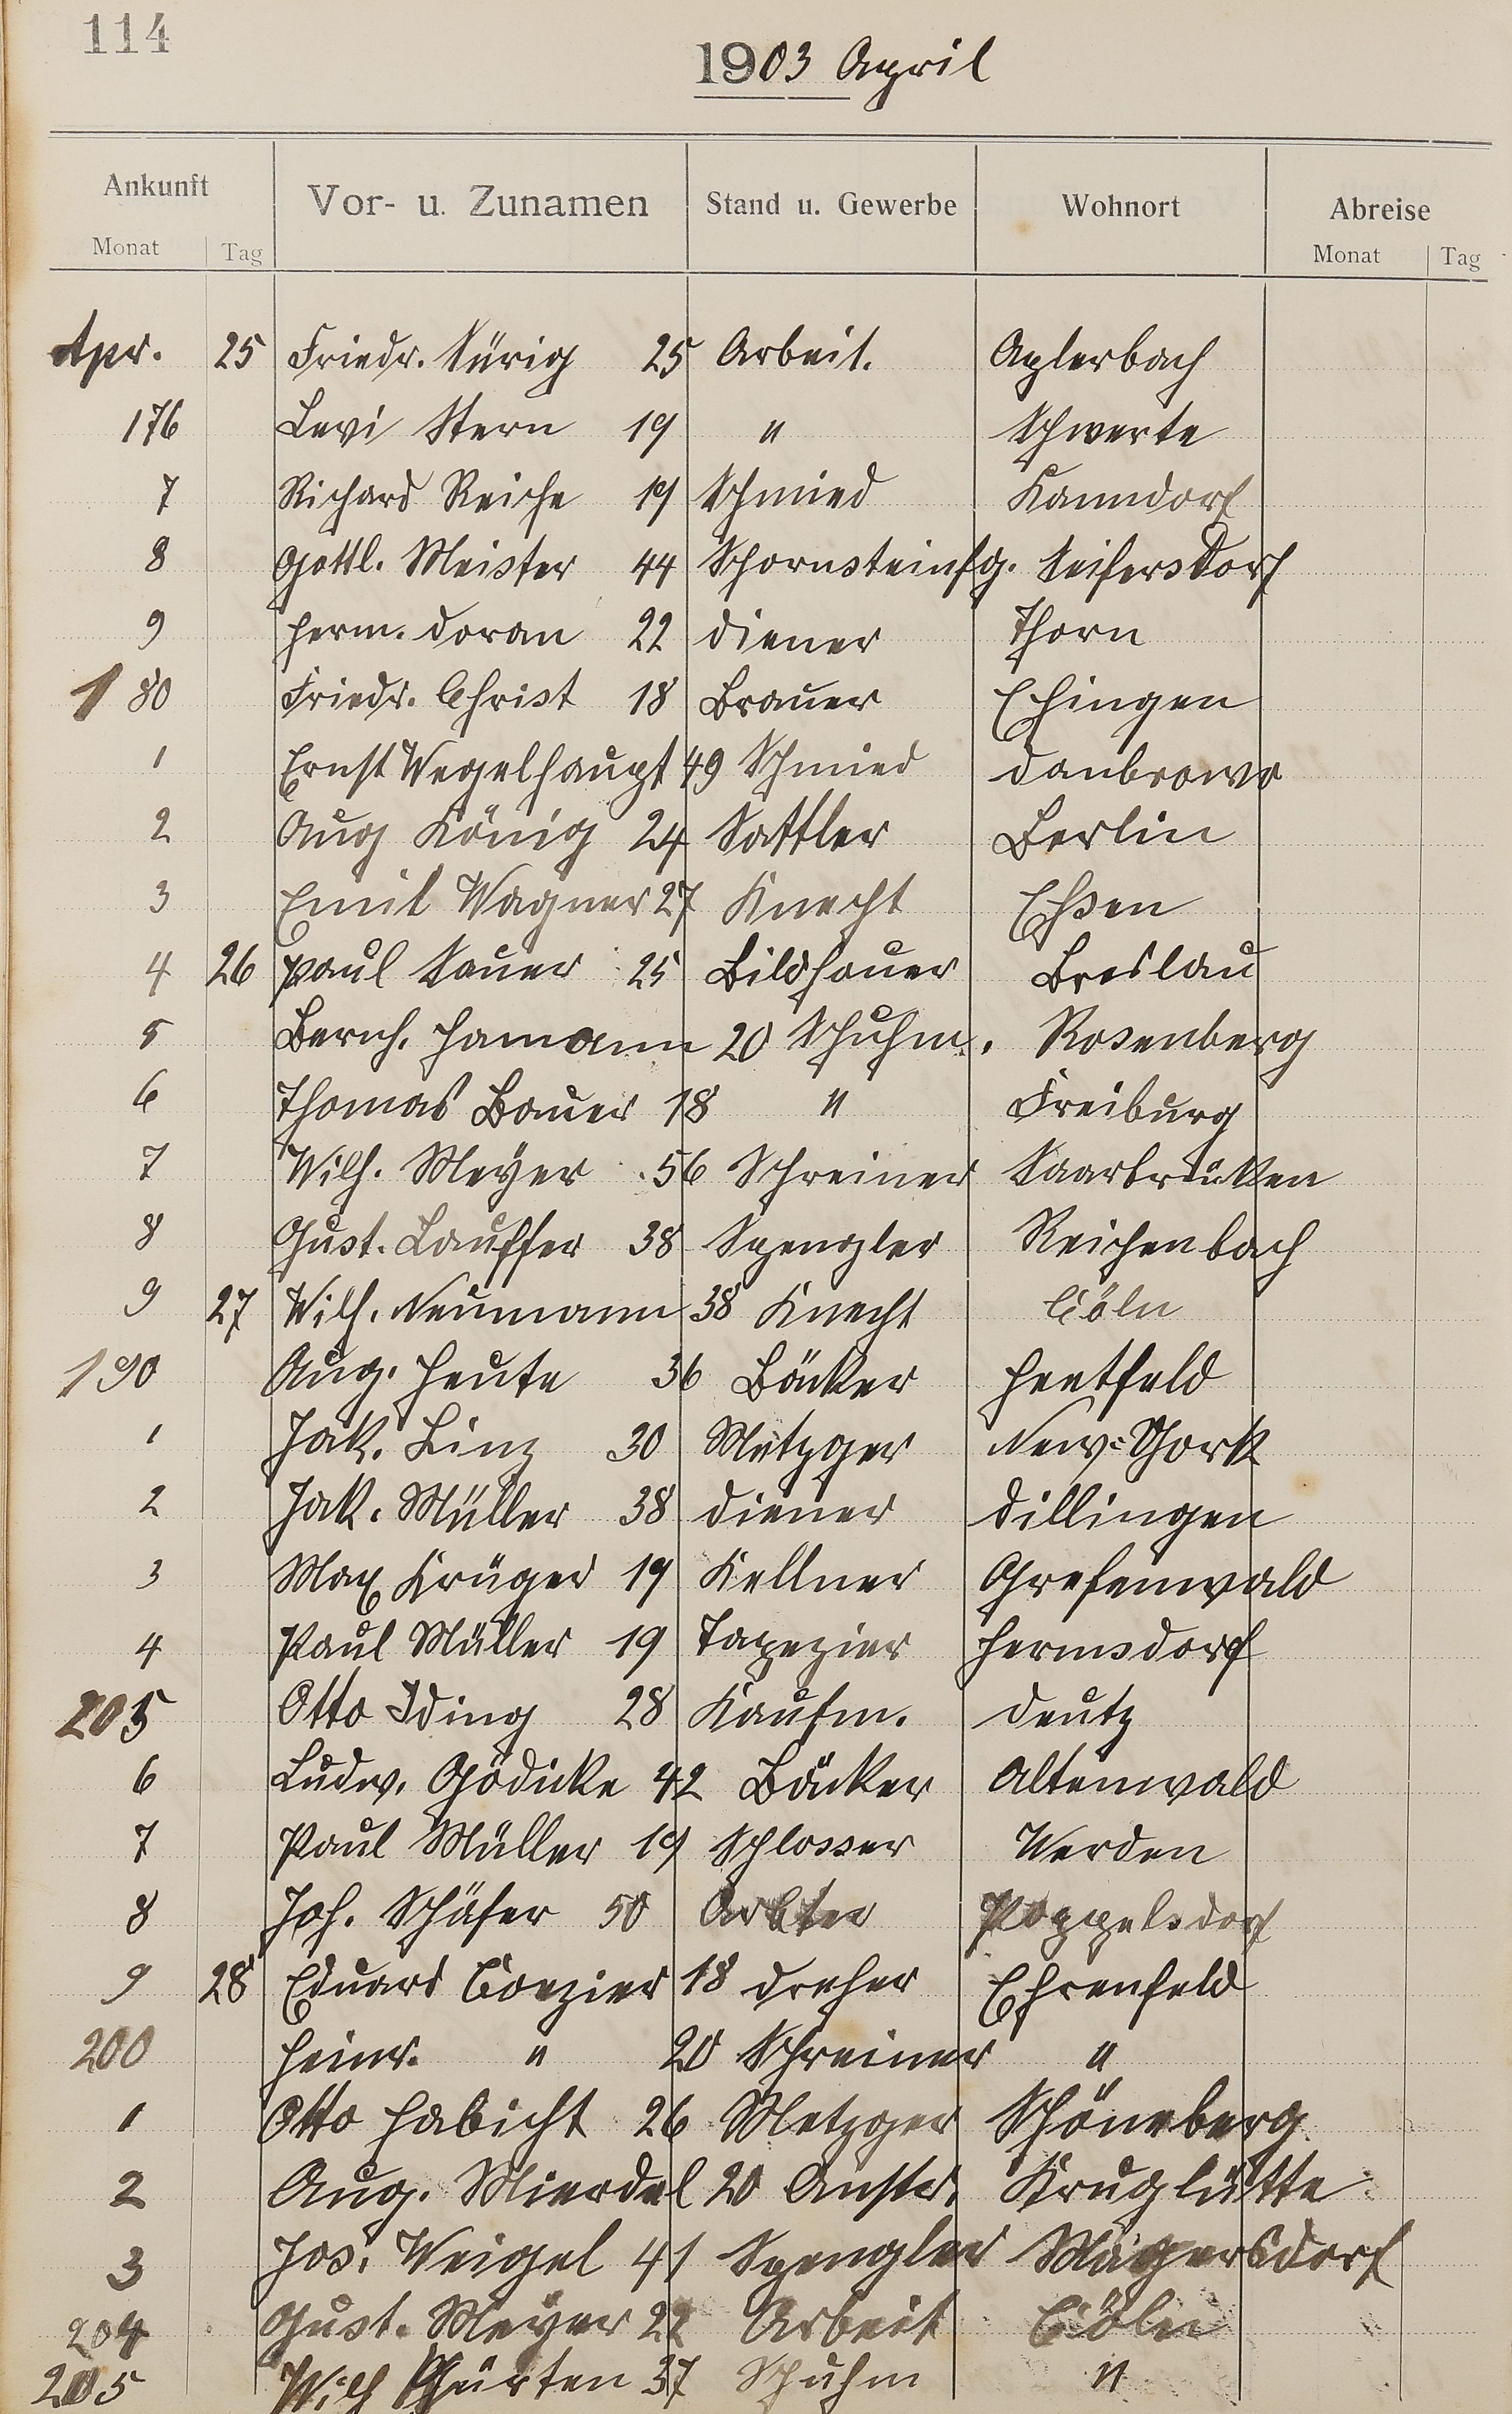 114
1903 April
Ankunft Vor- u. Zunamen Stand u. Gewerbe Wohnort Abreise
Monat Tag Monat Tag
Apr. 25 Friedr. Sürig 25 Arbeit. Aplerbach
176 Levi Stern 19 " Schwerte
7 Richard Reiche 19 Schmied Kanndorf
8 Gottl. Meister 44 Schornsteinfg. Seifersdorf
9 Herm. Doran 22 Diener Thorn
180 Friedr. Christ 18 Brauer Ehingen
1 Ernst Wegelhaupt 49 Schmied Danbrowo
2 Aug König 24 Sattler Berlin
3 Emil Wagner 27 Knecht Eßen
4 26 Paul Sauer 25 Bildhauer Breslau
5 Bernh. Hamann 20 Schuhm. Rosenberg
6 Thomas Bauer 18 " Freiburg
7 Wilh. Meyer 56 Schreiner Saarbrücken
8 Gust. Lauffer 38 Spengler Reichenbach
9 27 Wilh. Neumann 38 Knecht Cöln
190 Aug. Heute 36 Bäcker
1 Jak. Linz 30 Metzger New-York
2 Jak. Müller 38 Diener Dillingen
3 Max Krüger 19 Kellner Grefenwald
4 Paul Müller 19 Tapezier Hermsdorf
205 Otto Iding 28 Kaufm. Deutz
6 Ludw. Gödicke 42 Bäcker Altenwald
7 Paul Müller 19 Schlosser Werden
8 Joh. Schäfer 50 Poppelsdorf
9 28 Eduard 18 Dreher Ehrenfeld
200 Heinr. " 20 Schreiner "
1 Otto Habicht 26 Metzger Schöneberg
2 Aug. Mierdel 20 Anstr. Kruglütte
3 Jos. Weigel 41 Spengler Mägersdorf
204 Gust. Meyer 22 Arbeit Cöln
205 Wilh Schürten 37 Schuhm "